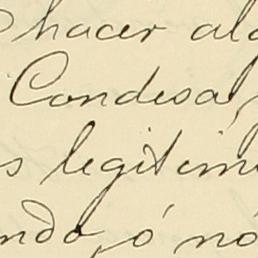 hacer alg
Condesa,
s legitim
ndo, ó nó